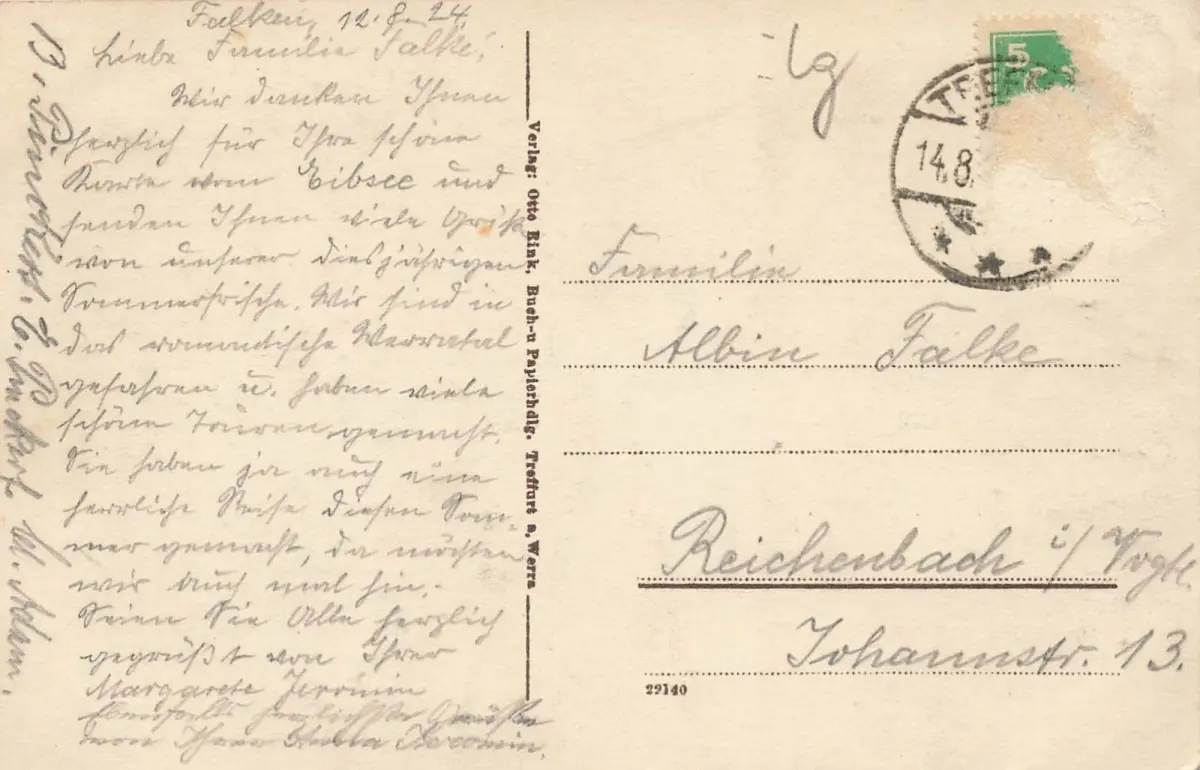 Falken, 12.8.24.
Liebe Familie Falke!
Wir danken Ihnen
herzlich für Ihre schöne
Karte vom Eibsee und
senden Ihnen viele Grüße
von unserer diesjährigen
Sommerfrische. Wir sind in
das romantische Werratal
gefahren u. haben viele
schöne Touren gemacht.
Sie haben ja auch eine
herrliche Reise diesen Som-
mer gemacht, da möchten
wir auch mal hin.-
Seien Sie Alle herzlich
gegrüßt von Ihrer
Margarete Jeromin
Ebenfalls herzlichste Grüße
von Ihrer Anna Jeromin.
Verlag: Otto Rink, Buch-u Papierhdlg. Treffurt a, Werra
5
TREF
14.8.
Familie
Albin Falke
Reichenbach i/Vogtl.
Johannstr. 13.
29140